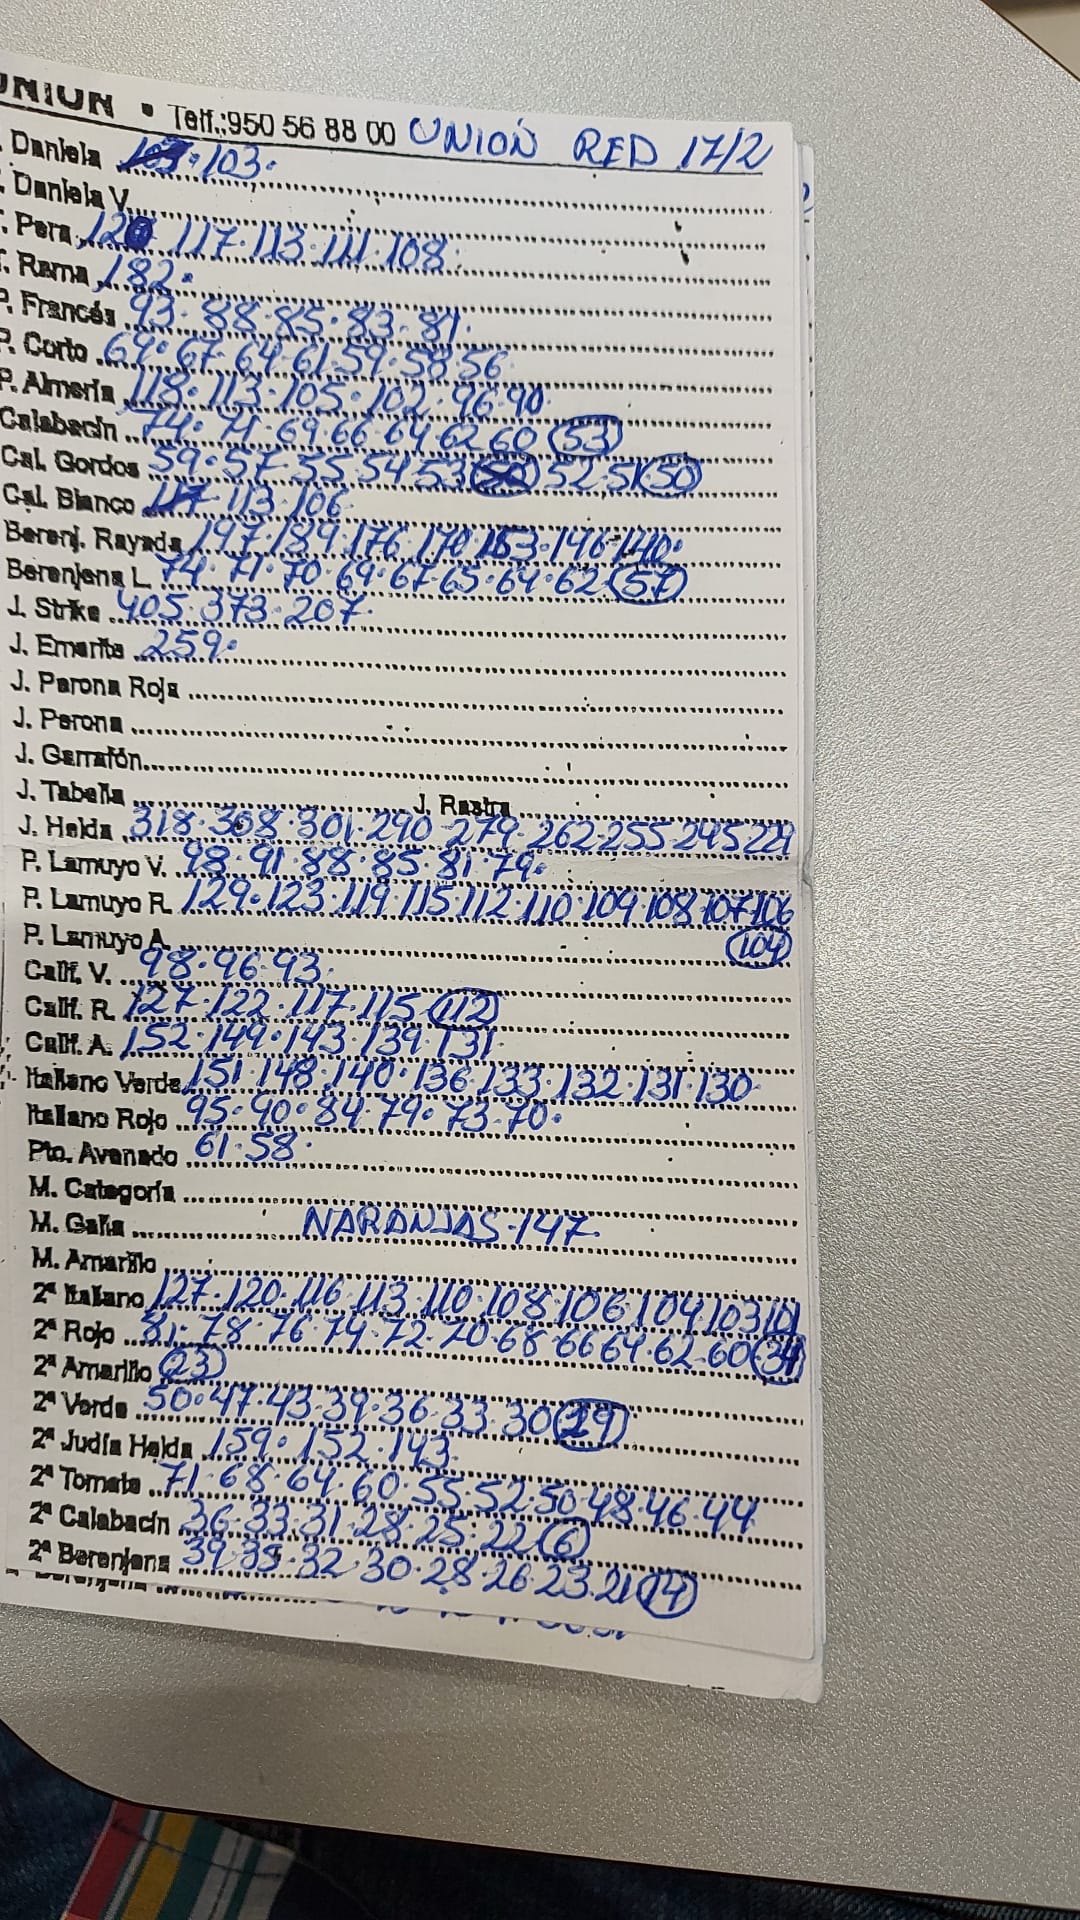 UNION • Telf.:950 56 88 00 UNION RED 17/2
Daniela 103.
Daniela V.
T. Pera 120 117.113.111.108.
T. Rama 182.
P. Francés 93.88.85.83.81.
P. Corto 69.67.64.61.59.58.56
P. Almería 118.113.105.102.96.90.
Calabacín 74.71.69.66.64.62.60 (53)
Cal. Gordos 59.57.55.54 53 52.51 (50)
Cal. Blanco 117 113.106.
Berenj. Rayada 197.189.176.170.153.146.140.
Berenjena L. 74.71.70.69.67.65.64.62 (57)
J. Strike 405.373.207.
J. Emerite 259.
J. Perona Roja
J. Perona
J. Garrafón
J. Tabella J. Rastra
J. Helda 318.308.301.290.279.262.255.245 229
P. Lamuyo V. 98.91.88.85.81.79.
P. Lamuyo R. 129.123.119.115.112.110.109.108.107.106
P. Lamuyo A. (104)
Calif. V. 98.96.93.
Calif. R. 127.122.117.115 (112)
Calif. A. 152.149.143.139.131.
Italiano Verde 151.148.140.136.133.132.131.130.
Italiano Rojo 95.90.84.79.73.70.
Pto. Avenado 61.58.
M. Categoría
M. Galia NARANJAS-147.
M. Amarillo
2ª Italiano 127.120.116.113.110.108.106.104.103 101
2ª Rojo 81.78.76.74.72.70.68.66 64.62.60 (34)
2ª Amarillo (23)
2ª Verde 50.47.43.39.36.33.30 (29)
2ª Judía Helda 159.152.143.
2ª Tomate 71.68.64.60.55.52.50.48.46.44
2ª Calabacín 36.33.31.28.25.22 (6)
2ª Berenjena 39.35.32.30.28.26.23.21 (14)